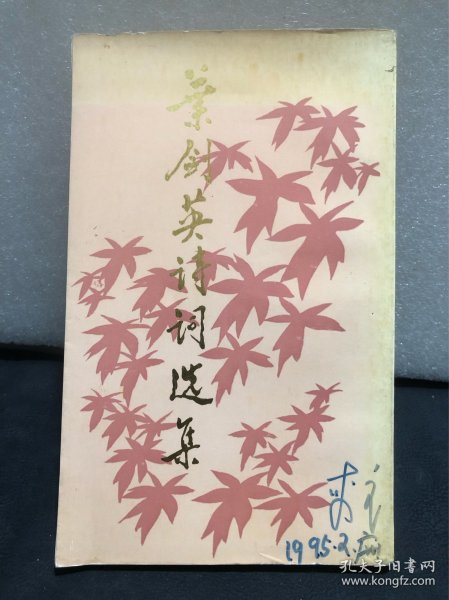 葉剑英诗词选集
1995.2.
孔夫子旧书网
www.kongfz.com